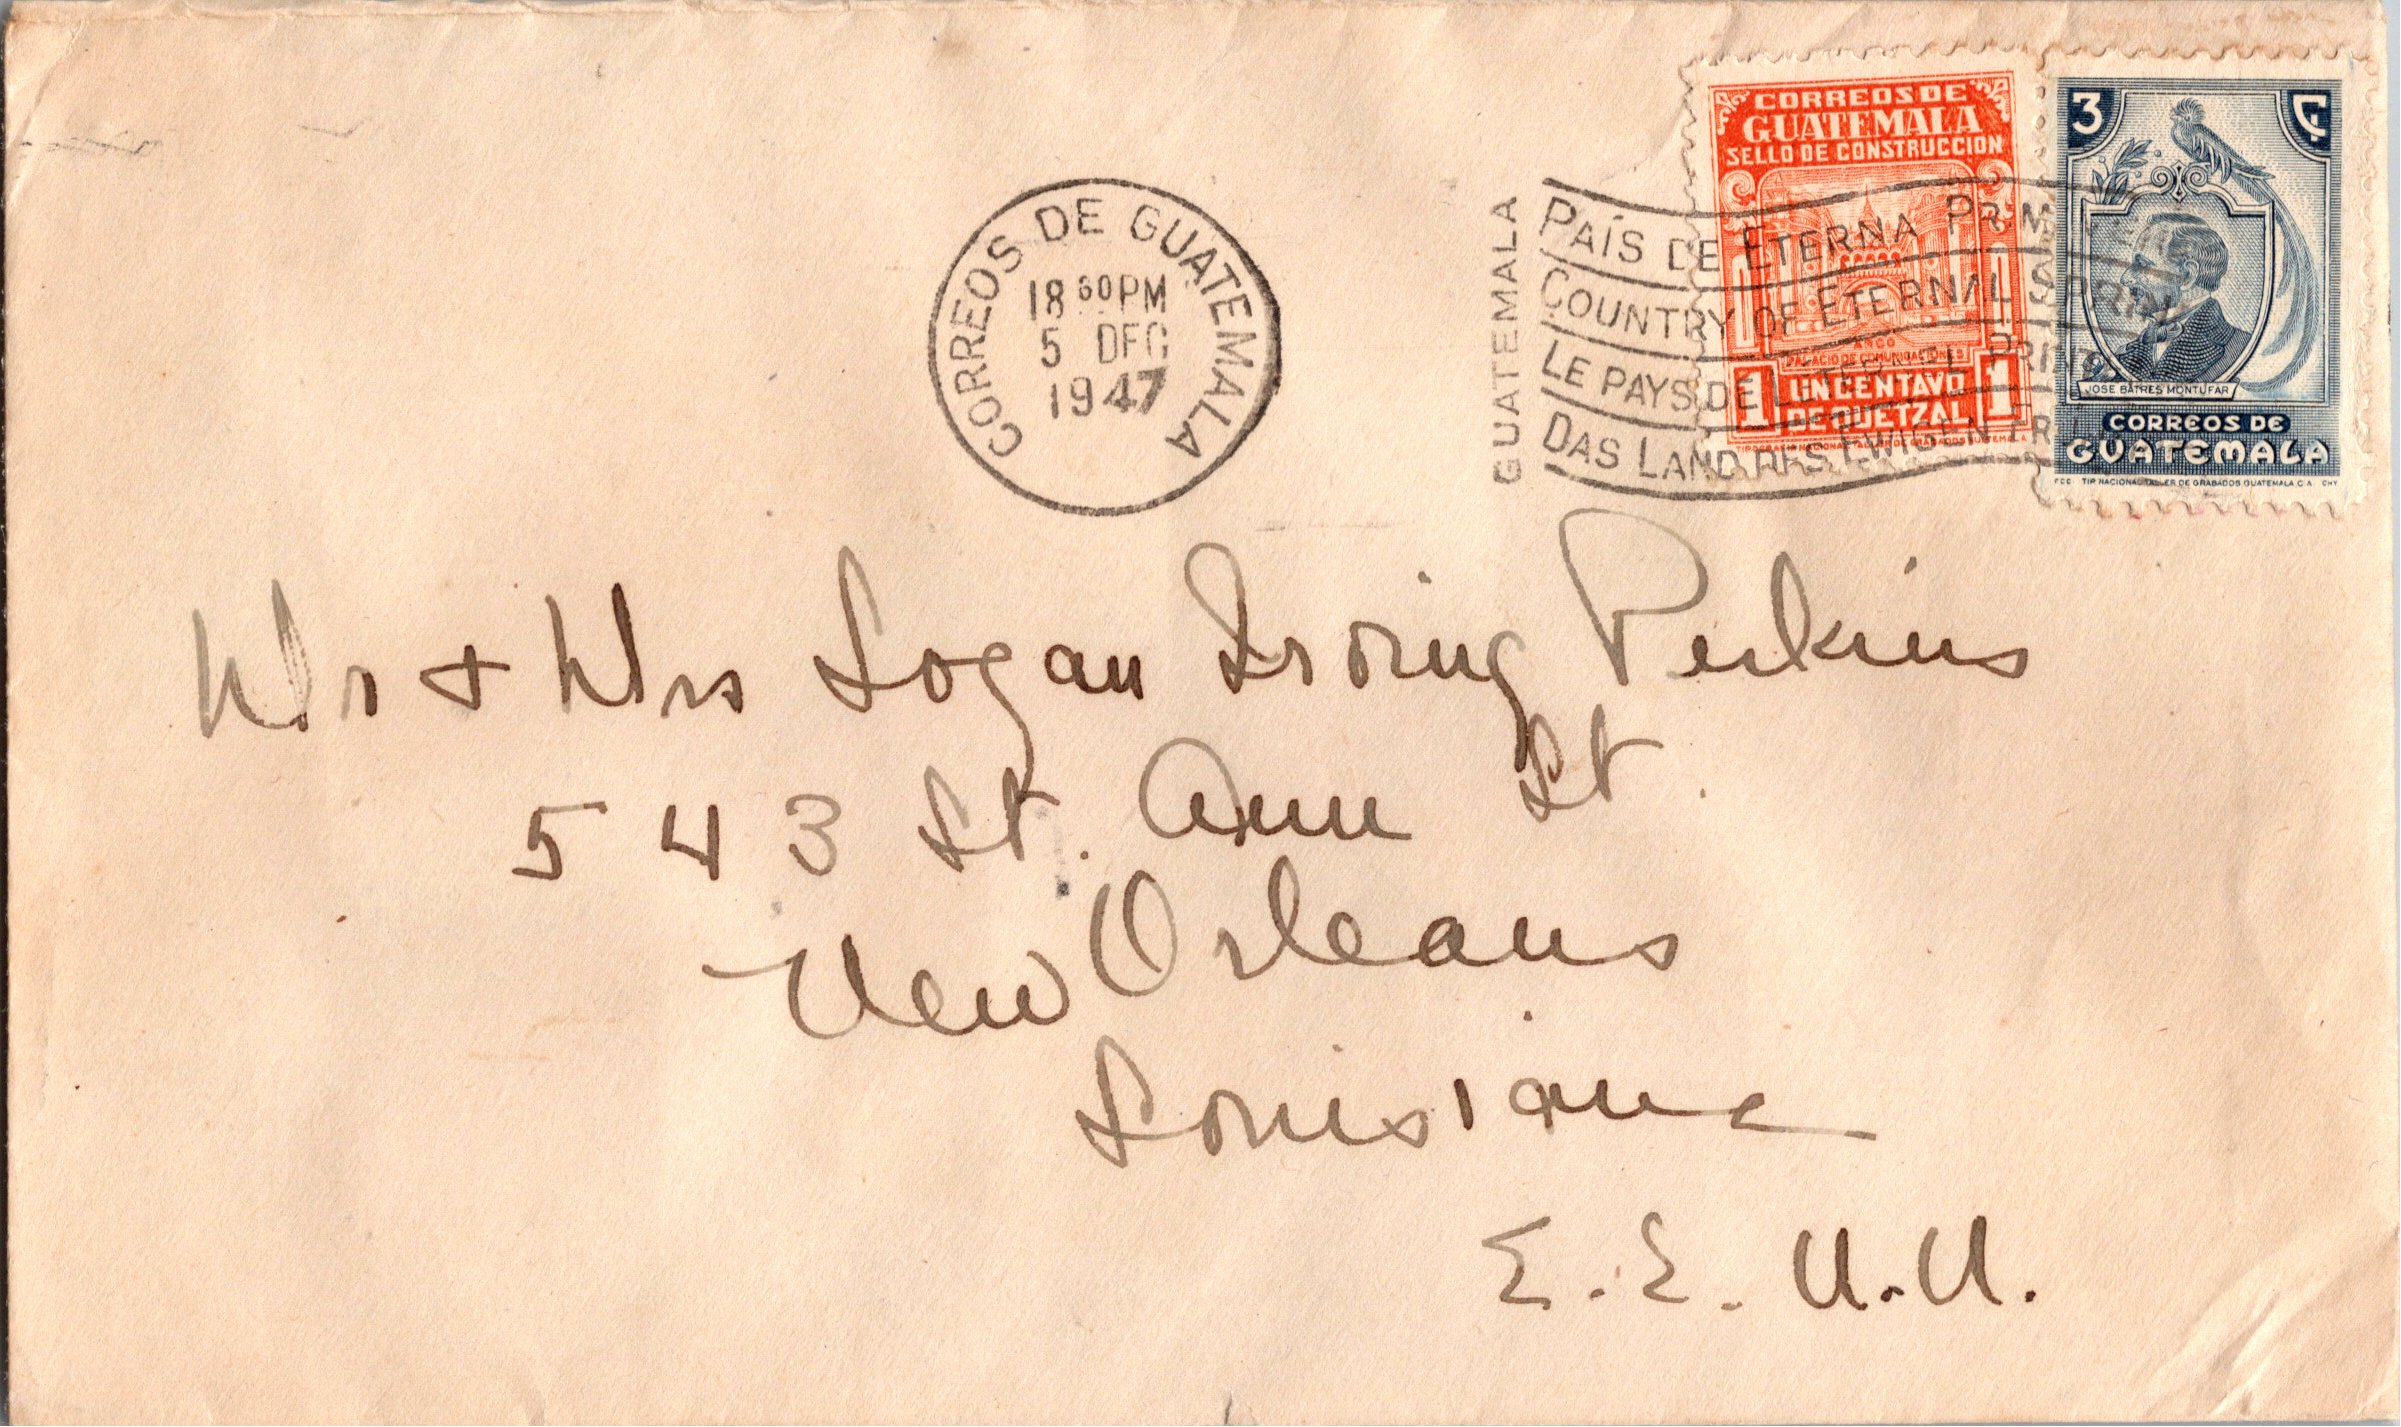 CORREOS DE GUATEMALA
18 60 PM
5 DEC
1947
GUATEMALA
PAÍS DE ETERNA PRIMAVERA
COUNTRY OF ETERNAL SPRING
LE PAYS DE L'ETERNEL PRINT
DAS LAND DES EWIGEN FR
CORREOS DE
GUATEMALA
SELLO DE CONSTRUCCION
ARCO
PALACIO DE COMUNICACIONES
1 UN CENTAVO 1
DE QUETZAL
3 C
JOSE BATRES MONTUFAR
CORREOS DE
GUATEMALA
FCC TIP NACIONAL TALLER DE GRABADOS GUATEMALA C.A. CHY
Mr + Mrs Logan Irving Perkins
543 St. Ann St.
New Orleans
Louisiana
E.E.U.U.